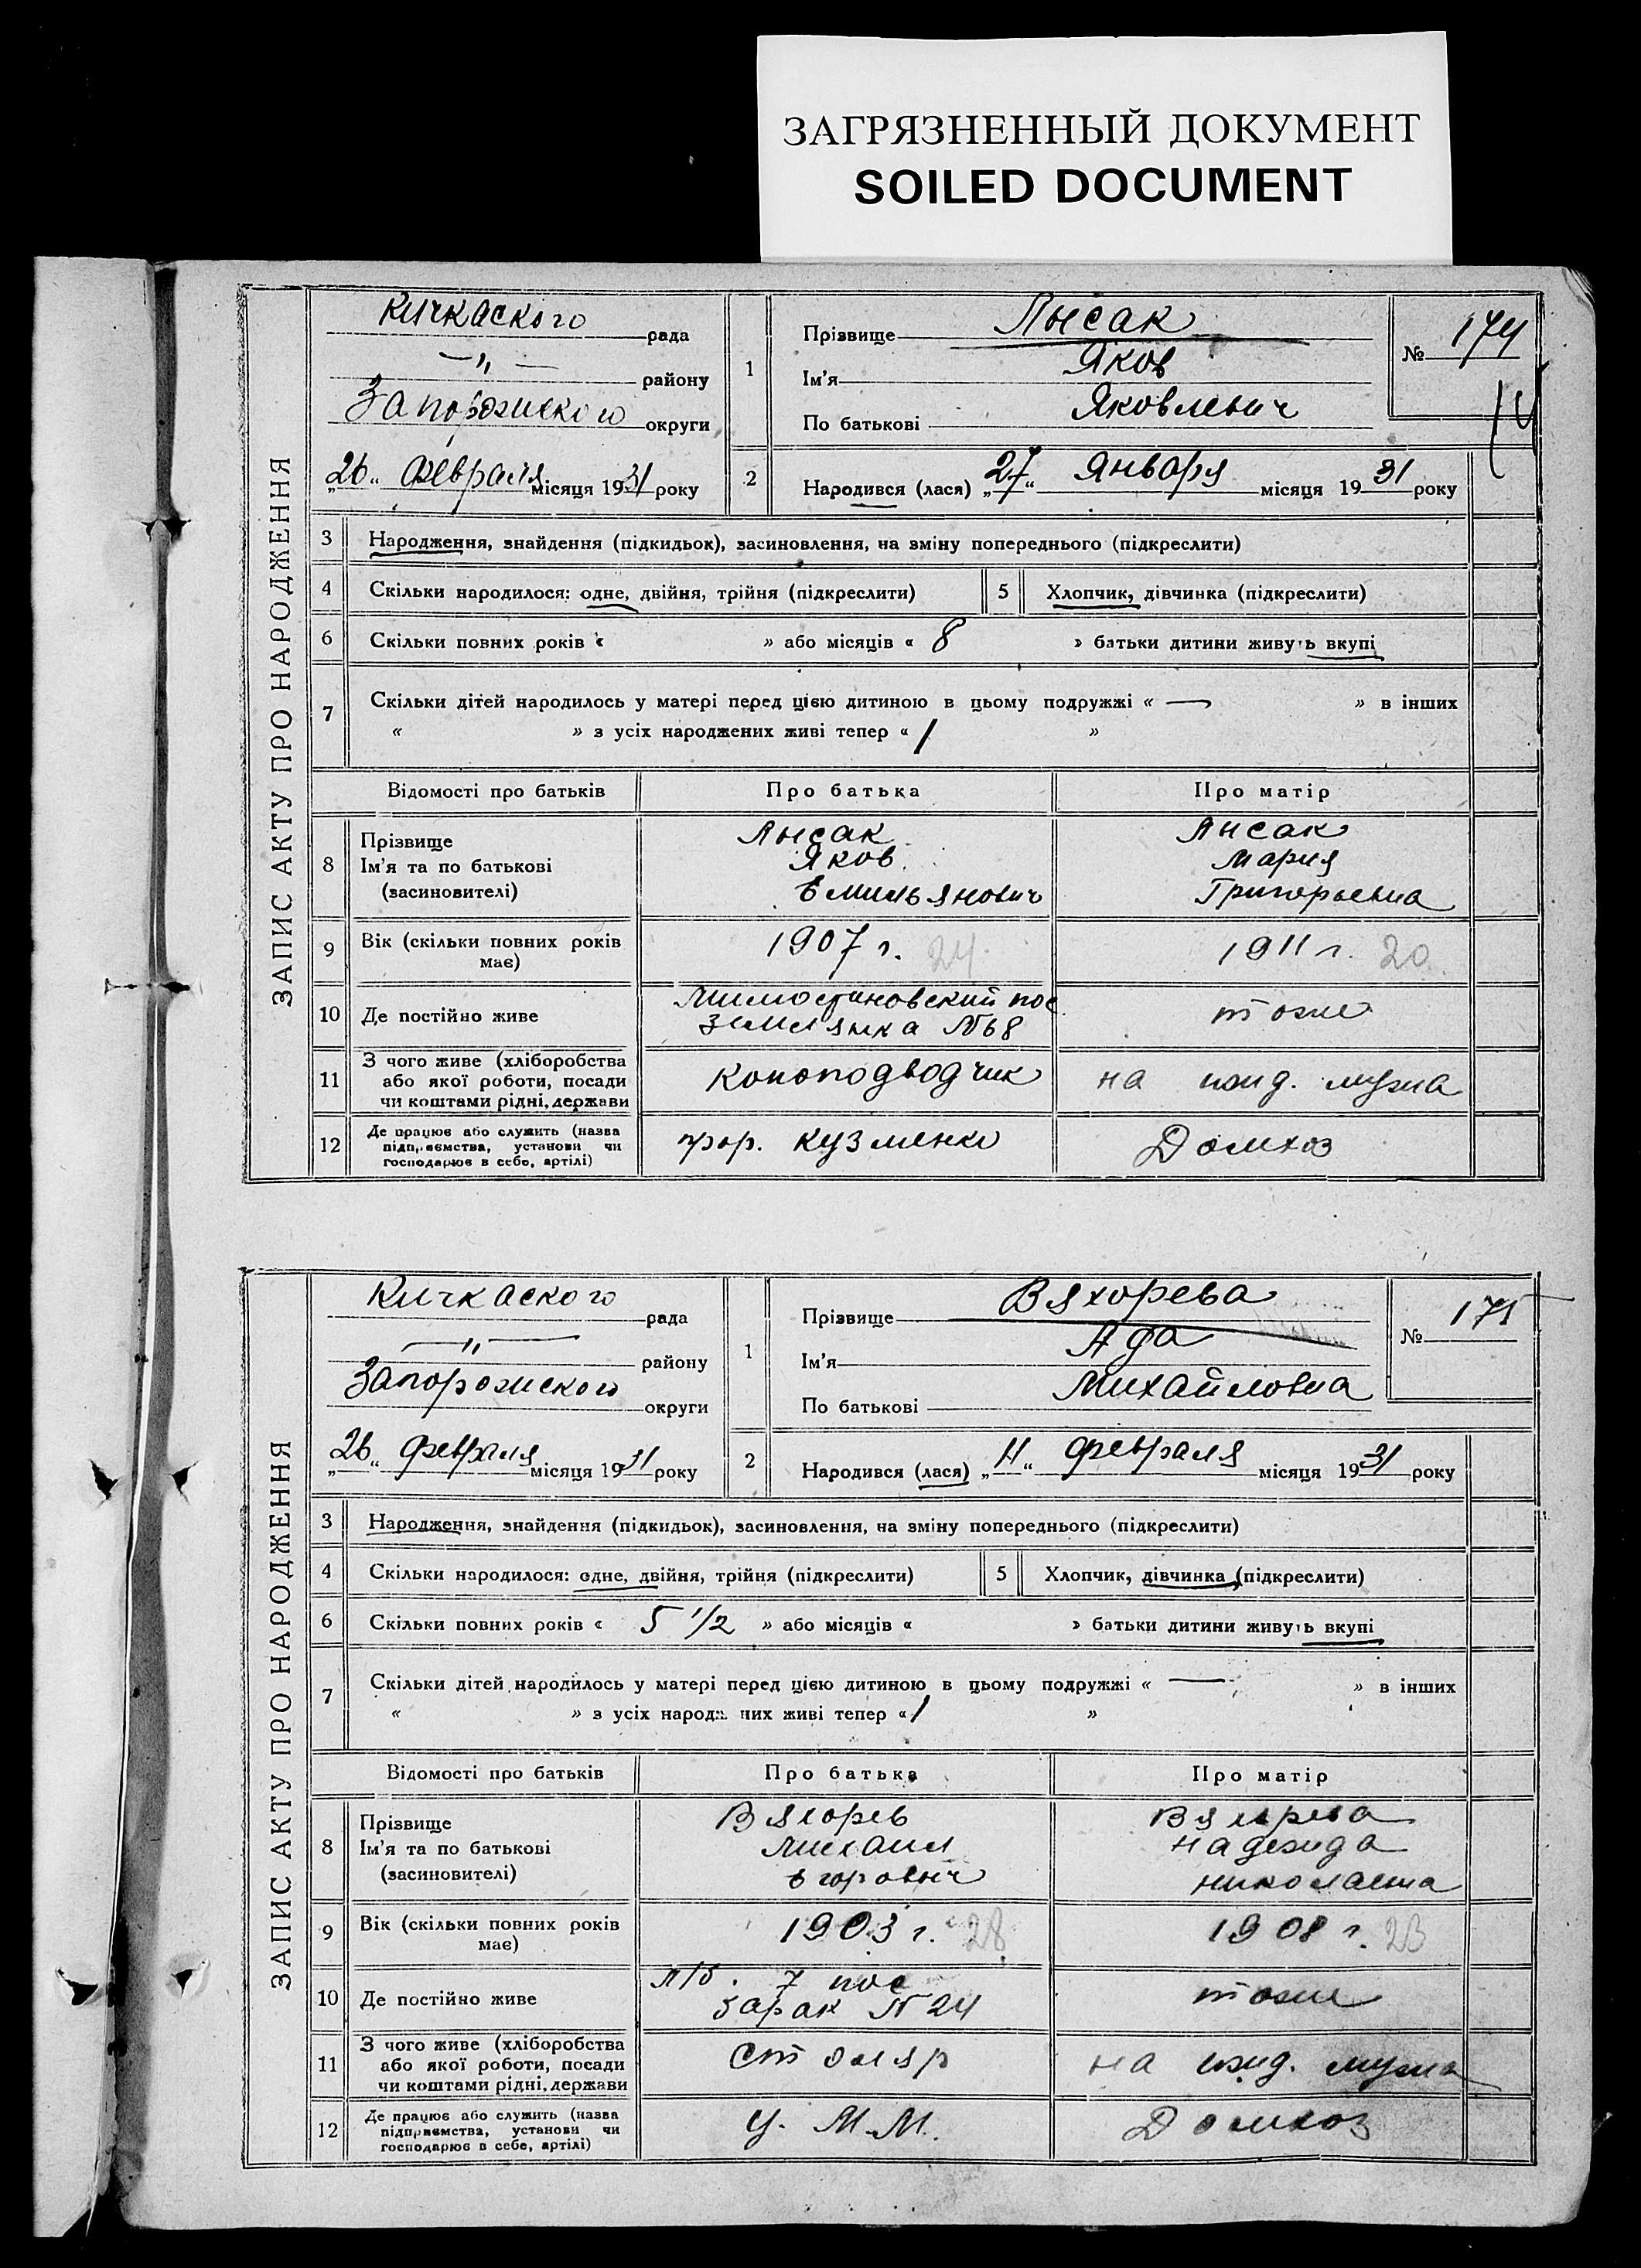 ЗАГРЯЗНЕННЫЙ ДОКУМЕНТ
SOILED DOCUMENT
ЗАПИС АКТУ ПРО НАРОДЖЕННЯ
Кичкаского рада
—„— району
Запорожского округи
„26“ февраля місяця 1931 року
1 Прізвище Лысак
Ім'я Яков
По батькові Яковлевич
№ 174
2 Народився (лася) „27“ Января місяця 1931 року
3 Народження, знайдення (підкидьок), засиновлення, на зміну попереднього (підкреслити)
4 Скільки народилося: одне, двійня, трійня (підкреслити) 5 Хлопчик, дівчинка (підкреслити)
6 Скільки повних років « » або місяців « 8 » батьки дитини живуть вкупі
7 Скільки дітей народилось у матері перед цією дитиною в цьому подружжі « — » в інших
« » з усіх народжених живі тепер « 1 »
Відомості про батьків Про батька Про матір
8 Прізвище Лысак Лысак
Ім'я та по батькові Яков Мария
(засиновителі) Емильянович Григорьевна
9 Вік (скільки повних років має) 1907 г. 24 1911 г. 20
10 Де постійно живе пос тоже
землянка №68
11 З чого живе (хліборобства
або якої роботи, посади
чи коштами рідні, держави
Коноподводчик на ижд. мужа
12 Де працює або служить (назва
підприємства, установи чи
господарює в себе, артілі)
Кузменко Домхоз
ЗАПИС АКТУ ПРО НАРОДЖЕННЯ
Кичкаского рада
—„— району
Запорожского округи
„26“ февраля місяця 1931 року
1 Прізвище Вяхорева
Ім'я Ада
По батькові Михайловна
№ 175
2 Народився (лася) „11“ февраля місяця 1931 року
3 Народження, знайдення (підкидьок), засиновлення, на зміну попереднього (підкреслити)
4 Скільки народилося: одне, двійня, трійня (підкреслити) 5 Хлопчик, дівчинка (підкреслити)
6 Скільки повних років « 5 1/2 » або місяців « » батьки дитини живуть вкупі
7 Скільки дітей народилось у матері перед цією дитиною в цьому подружжі « — » в інших
« » з усіх народжених живі тепер « 1 »
Відомості про батьків Про батька Про матір
8 Прізвище Вяхорев Вяхрева
Ім'я та по батькові Михаил Надежда
(засиновителі) Егорович Николаевна
9 Вік (скільки повних років має) 1903 г. 28 1908 г. 23
10 Де постійно живе 7 пос тоже
барак №24
11 З чого живе (хліборобства
або якої роботи, посади
чи коштами рідні, держави
столяр на ижд. мужа
12 Де працює або служить (назва
підприємства, установи чи
господарює в себе, артілі)
У. М.М. Домхоз